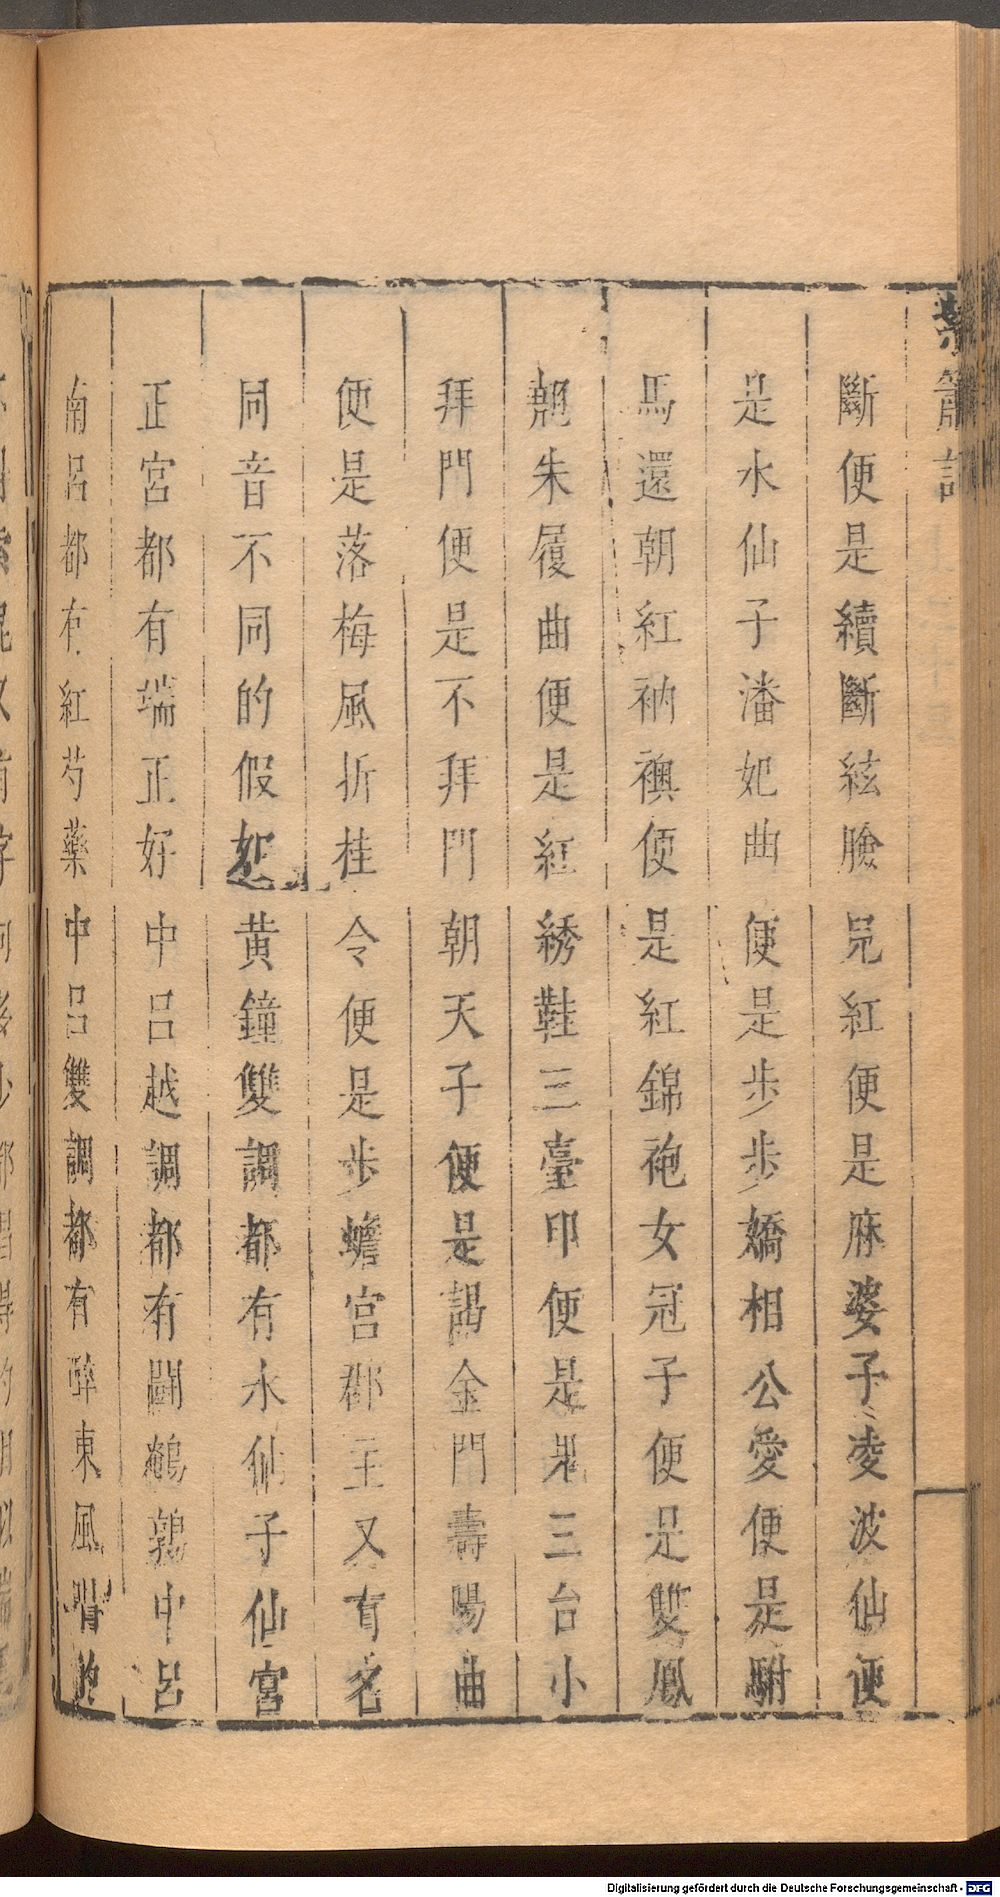 紫簫記
斷便是續斷絃臉兒紅便是麻婆子凌波仙便
是水仙子潘妃曲便是步步嬌相公愛便是駙
馬還朝紅衲襖便是紅錦袍女冠子便是雙鳳
翹朱履曲便是紅綉鞋三臺印便是鬼三台小
拜門便是不拜門朝天子便是謁金門壽陽曲
便是落梅風折桂令便是步蟾宮郡王又有名
同音不同的假如黃鐘雙調都有水仙子仙宮
正宮都有端正好中呂越調都有鬪鵪鶉中呂
南呂都有紅芍藥中呂雙調都有醉東風
Digitalisierung gefördert durch die Deutsche Forschungsgemeinschaft - DFG